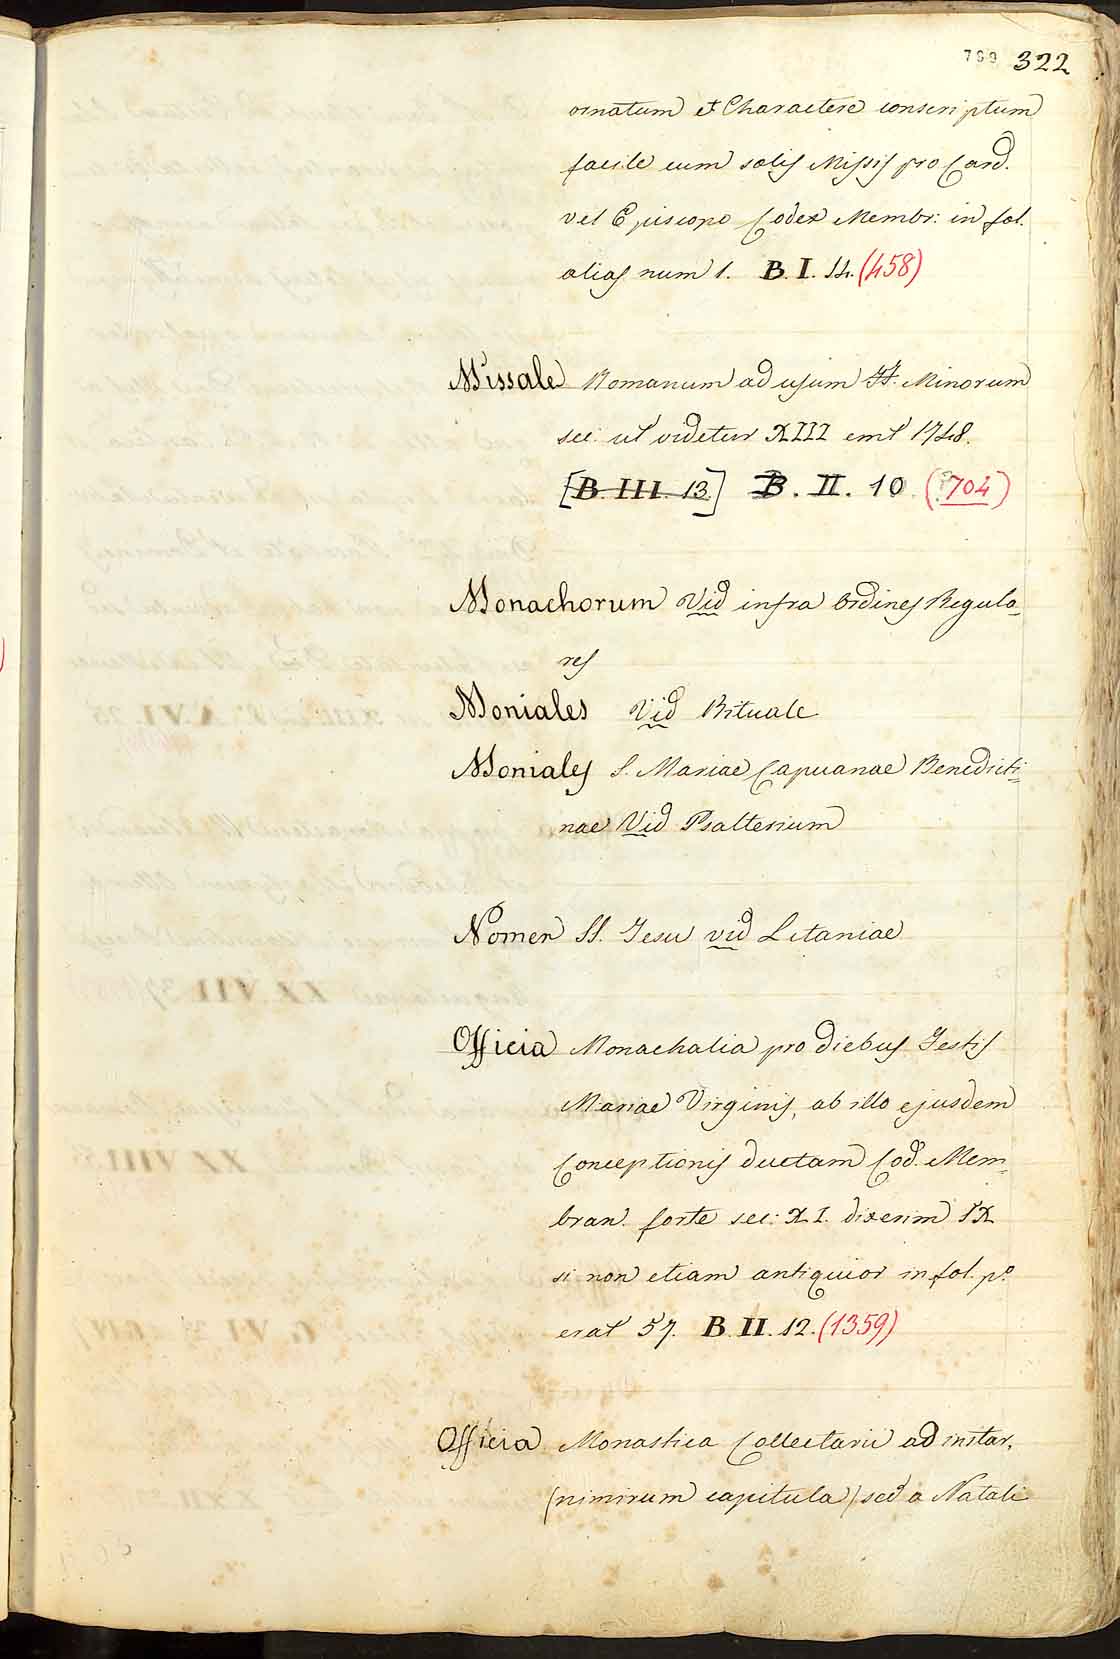 799 322
ornatum et Charactere conscriptum
facile cum solis Missis pro Card.
vel Episcopo Codex Membr: in fol.
alias num 1. B. I. 14. (458)
Missale Romanum ad usum FF. Minorum
sec: ut videtur XIII emt 1748.
[B. III. 13.] B. II. 10. (704)
Monachorum Vid infra Ordines Regula=
res
Moniales Vid Rituale
Moniales S. Mariae Capuanae Benedicti=
nae Vid Psalterium
Nomen SS. Jesu vid Litaniae
Officia Monachalia pro diebus Festis
Mariae Virginis, ab illo ejusdem
Conceptionis ductam Cod. Mem=
bran. forte sec: XI. dixerim IX
si non etiam antiquior in fol. po
erat 57. B. II. 12. (1359)
Officia Monastica Collectarii ad instar,
(nimirum capitula) sed a Natali